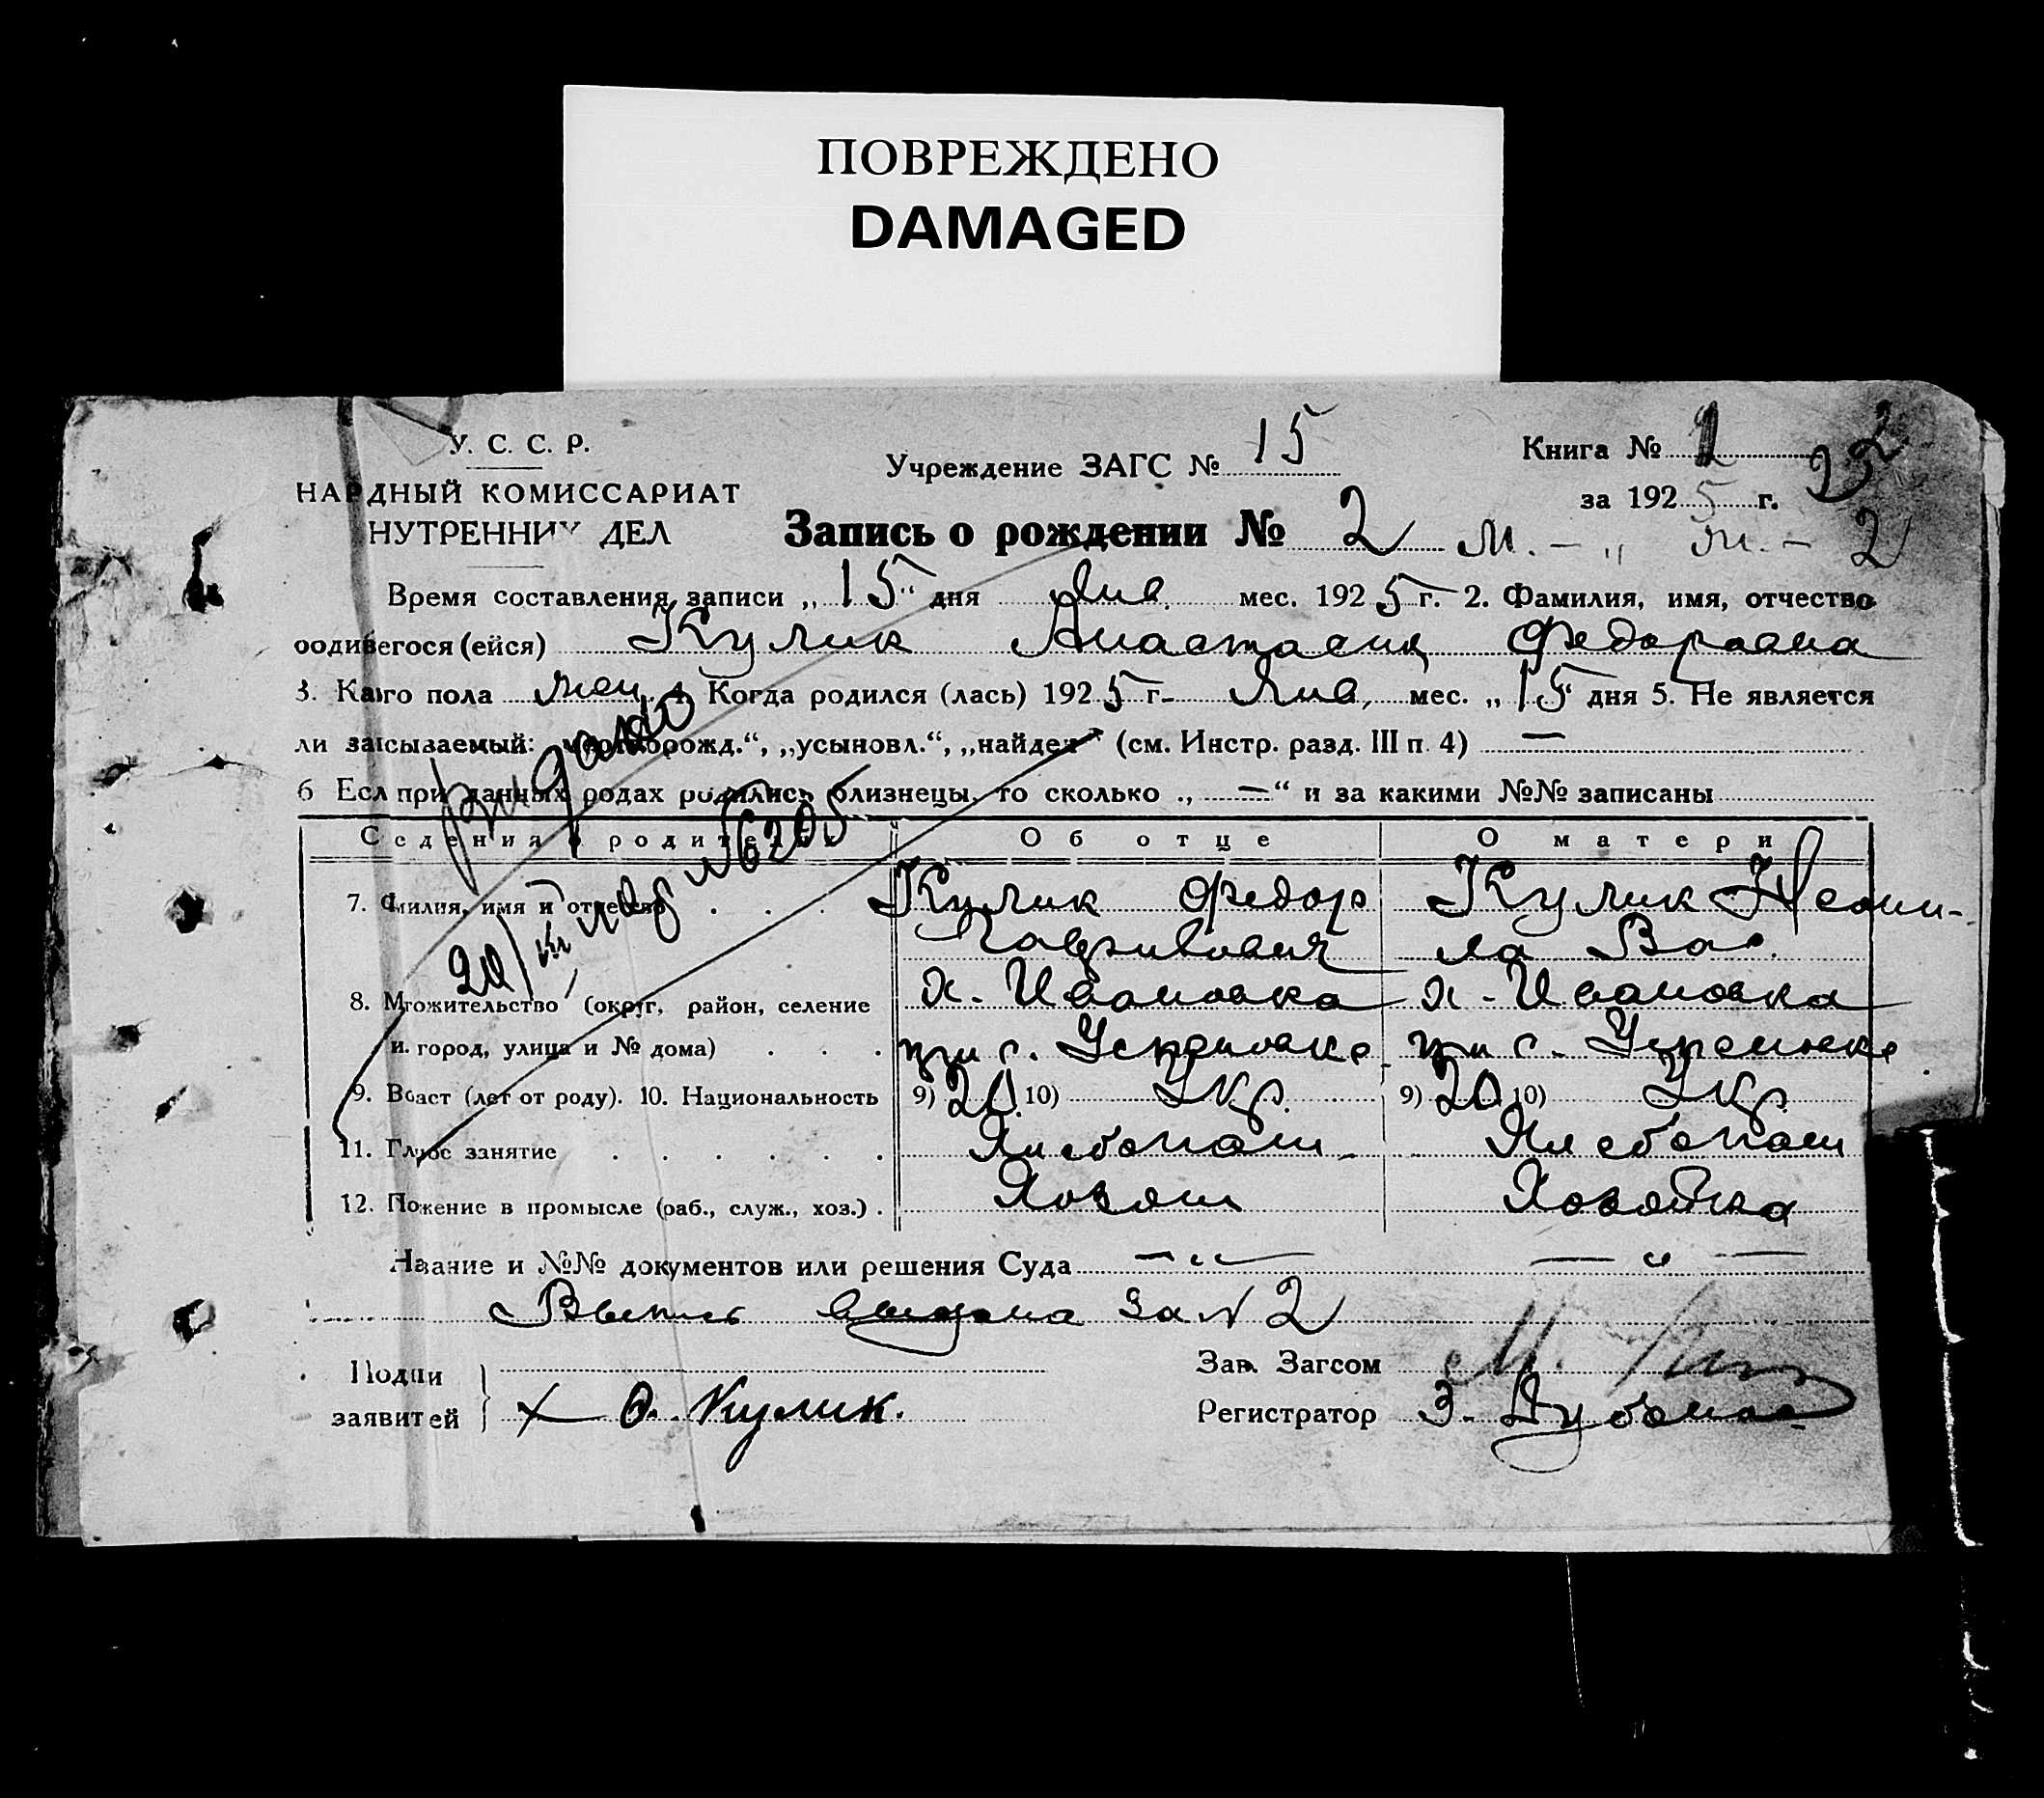 ПОВРЕЖДЕНО
DAMAGED
У. С. С. Р.
НАРДНЫЙ КОМИССАРИАТ
НУТРЕННИХ ДЕЛ
Учреждение ЗАГС № 15
Книга №
за 1925 г.
Запись о рождении № 2 М. — „ Ж. — 2
Время составления записи „15“ дня Янв. мес. 1925 г. 2. Фамилия, имя, отчество
родивегося (ейся) Кулик Анастасия Федоровна
3. Каого пола жен. 4. Когда родился (лась) 1925 г. Янв. мес. „15“ дня 5. Не является
ли заисываемый: „мертворожд.“, „усыновл.“, „найден“ (см. Инстр. разд. III п. 4) —
6 Есл при данных родах родились близнецы, то сколько „—“ и за какими №№ записаны
Седения о родителях
Об отце
О матери
7. Фмилия, имя и отчество . . .
Кулик Федор
Кулик Неони-
ла Вас.
8. Мтожительство (округ, район, селение
х. Ивановка
х. Ивановка
и. город, улица и № дома) . . .
при с.
при с.
9. Воаст (лет от роду). 10. Национальность
9) 20 10) Укр.
9) 20 10) Укр.
11. Глвое занятие . . . . . .
Хлебопаш.
Хлебопаш
12. Пожение в промысле (раб., служ., хоз.) .
Хозяин
Хозяйка
Нвание и №№ документов или решения Суда — „ — — „ —
Выпись выдана за № 2
Подпи
заявитей
Ф. Кулик.
Зав. Загсом
Регистратор З.